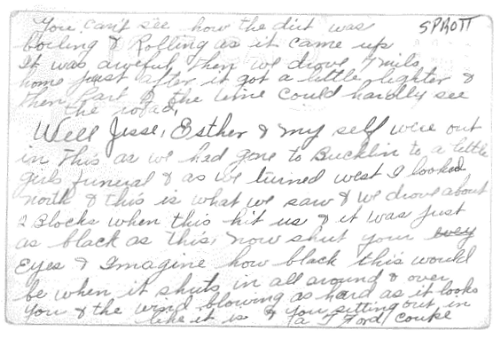 You can't see how the dirt was
SPROTT
boiling & Rolling as it came up
It was aweful then we drove 7 mile
home just after it got a little lighter &
then part of the time could hardly see
the road.
Well Jesse, Esther & my self wire out
in this as we had gone to Bucklin to a little
girls funeral & as we turned west I looked
north & this is what we saw & we drove about
2 Blocks when this hit us & it was just
as black as this, now shut your
Eyes & Imagine how black this would
be when it shuts in all around & over
you & the wind blowing as hard as it looks
like it is & you sitting out in
a T Ford coupe